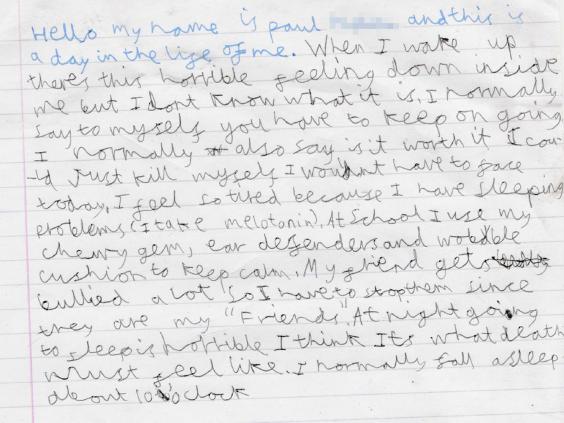 Hello my name is paul and this is
a day in the lige of me. When I wake up
theres this horrible feeling down inside
me but I dont know what it is. I normally
say to myself you have to keep on going
I normally also say is it worth it I cou
-ld Just kill myself I wouldnt have to face
today, I feel so tired because I have sleeping
problems (I take melotonin). At School I use my
chewy gem, ear defenders and wobble
cushion to keep calm. My friend gets
bullied a lot so I have to stop them since
they are my "Friends". At night going
to sleep is horrible I think Its what death
must feel like. I normally fall asleep
about 10 o'clock